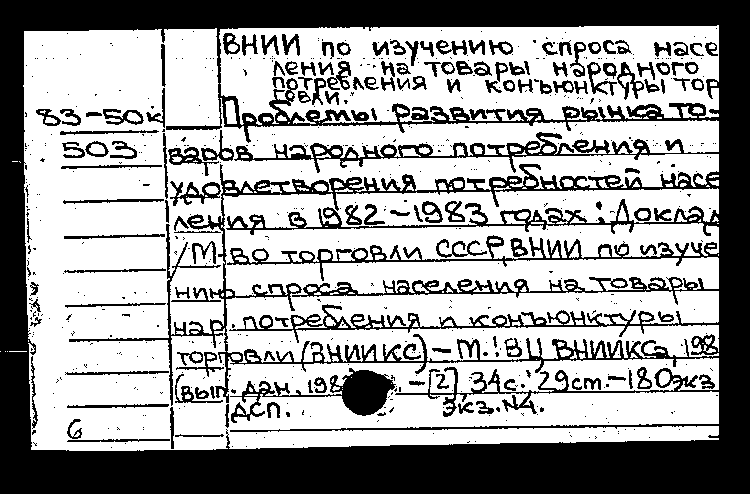 ВНИИ по изучению спроса насе
ления на товары народного
потребления и конъюнктуры тор
говли.
83-50к Проблемы развития рынка то-
503 варов народного потребления и
удовлетворения потребностей насе
ления в 1982-1983 годах: Доклад
/М-во торговли СССР, ВНИИ по изуче
нию спроса населения на товары
нар. потребления и конъюнктуры
торговли (ВНИИКС) - М.: ВЦ ВНИИКСа, 198
(вып. дан. 198 - [2] 34с. 29см. - 180экз
ДСП. Экз. N4.
6